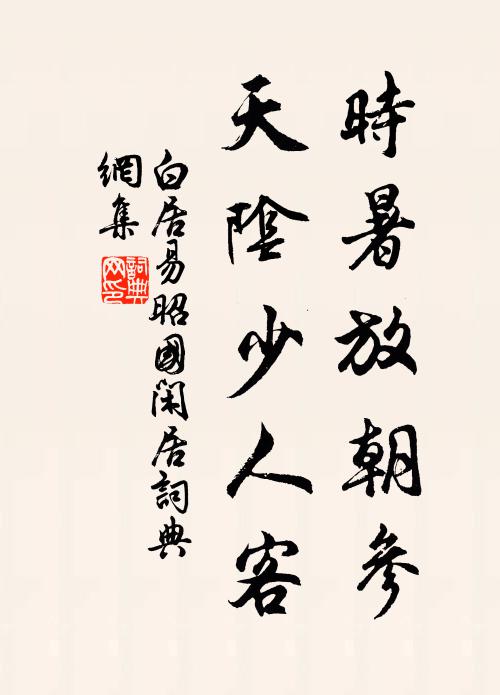 時暑放朝參
天陰少人客
白居易昭國閑居詞典
網集
詞典
网印